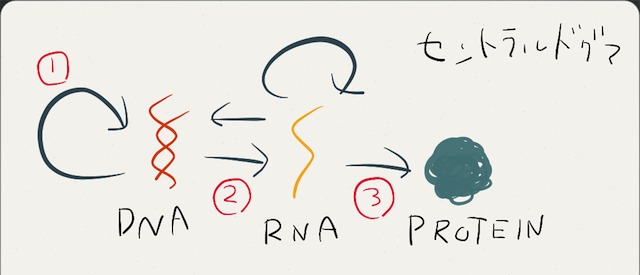 セントラルドグマ
①
② ③
DNA RNA PROTEIN